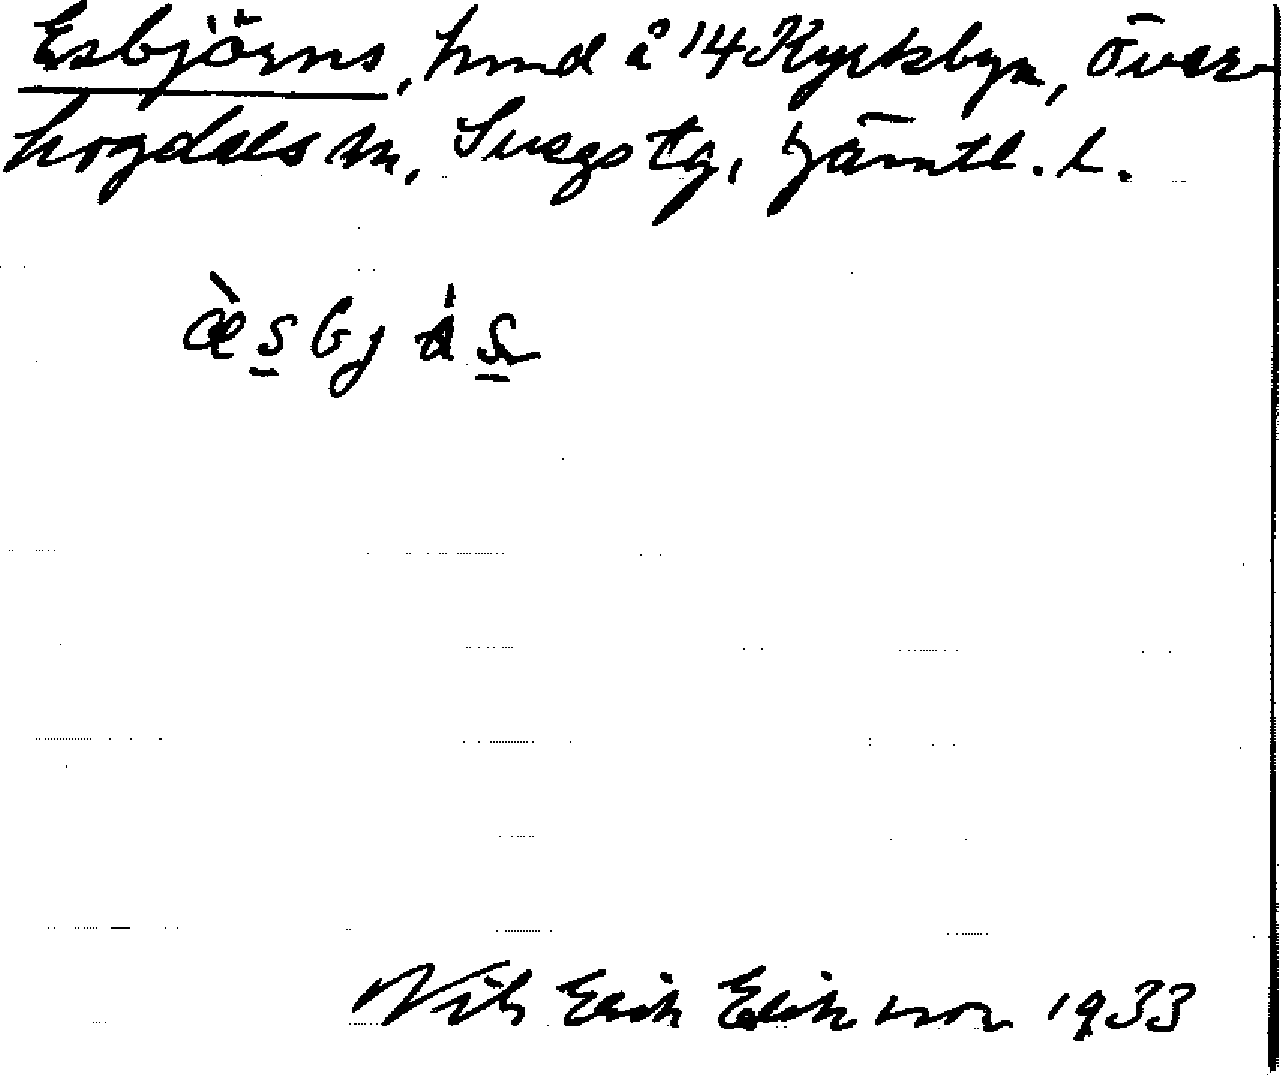 Esbjörns, hmd å 14 Kyrkbyn, Över-
hogdals sn, Svegs tg, Jämtl. l.
æ̀sbjás
Nils Erik Erikson 1933